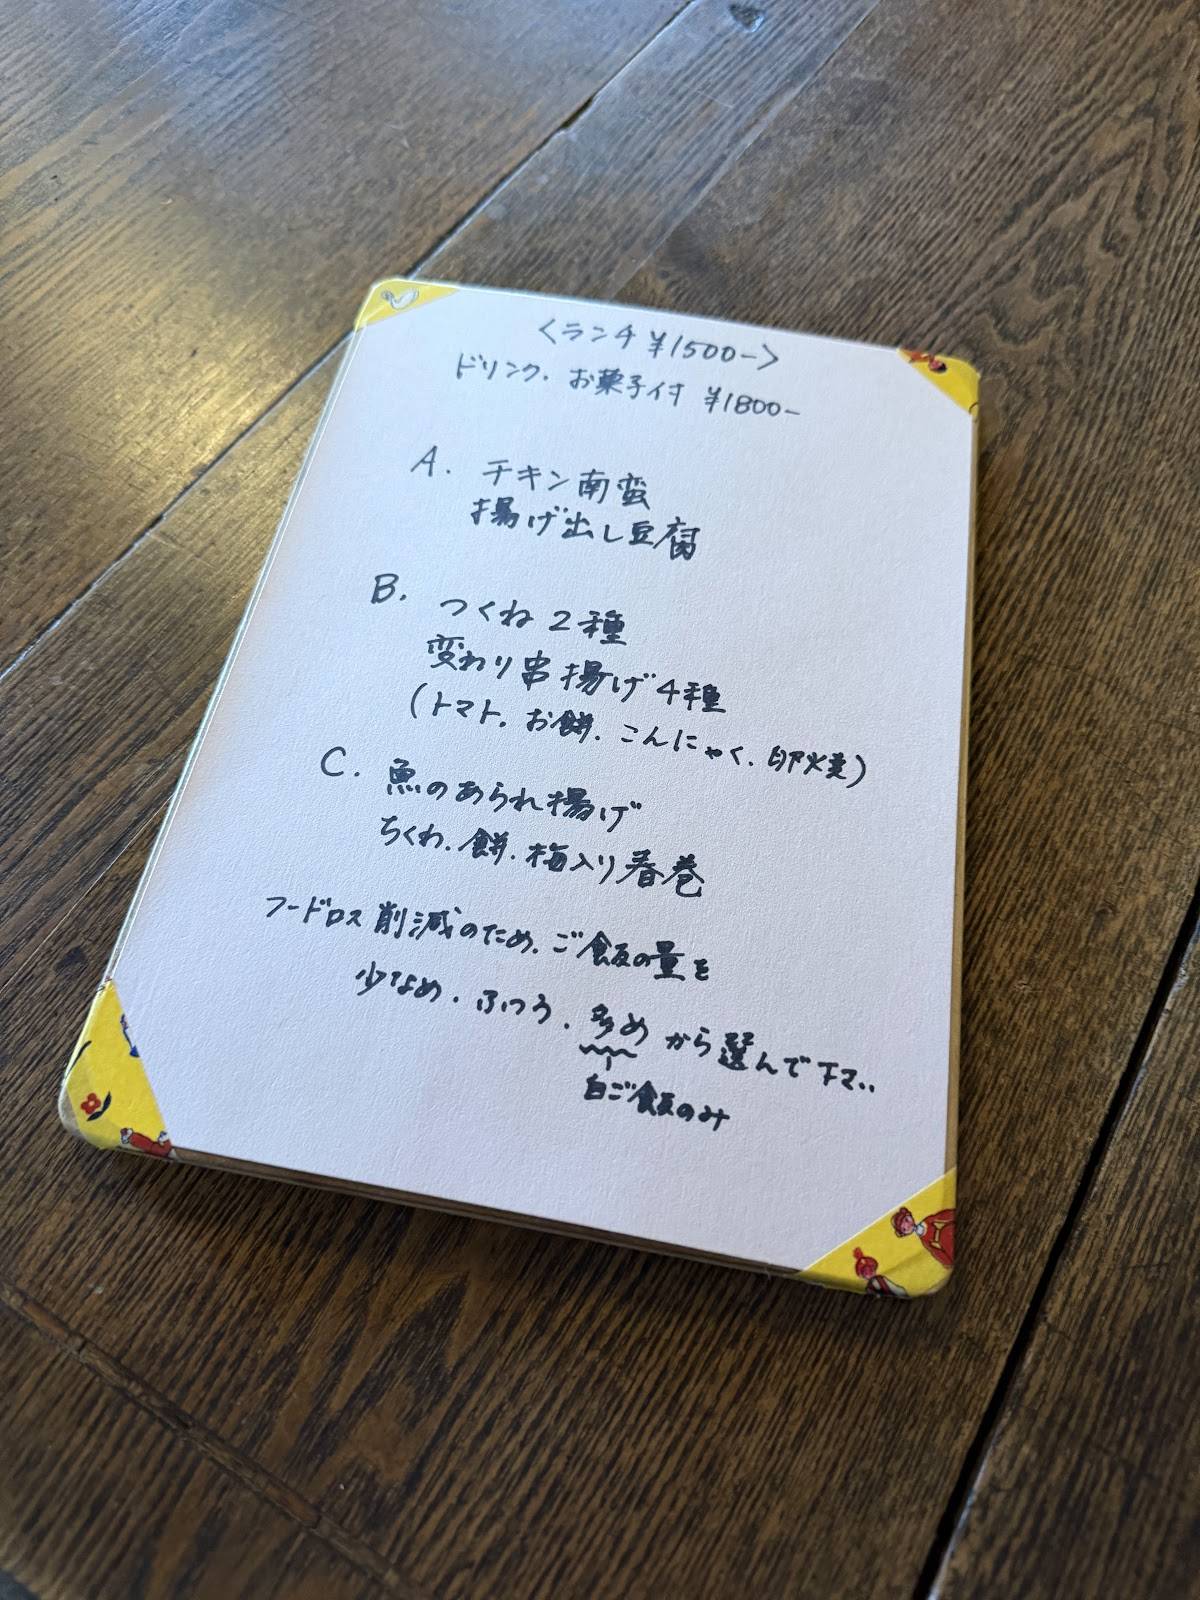 <ランチ ¥1500->
ドリンク、お菓子付 ¥1800-
A. チキン南蛮
揚げ出し豆腐
B. つくね2種
変わり串揚げ4種
(トマト、お餅、こんにゃく、卵焼)
C. 魚のあられ揚げ
ちくわ、餅、梅入り春巻
フードロス削減のため、ご飯の量を
少なめ、ふつう、多めから選んで下さい
白ご飯のみ